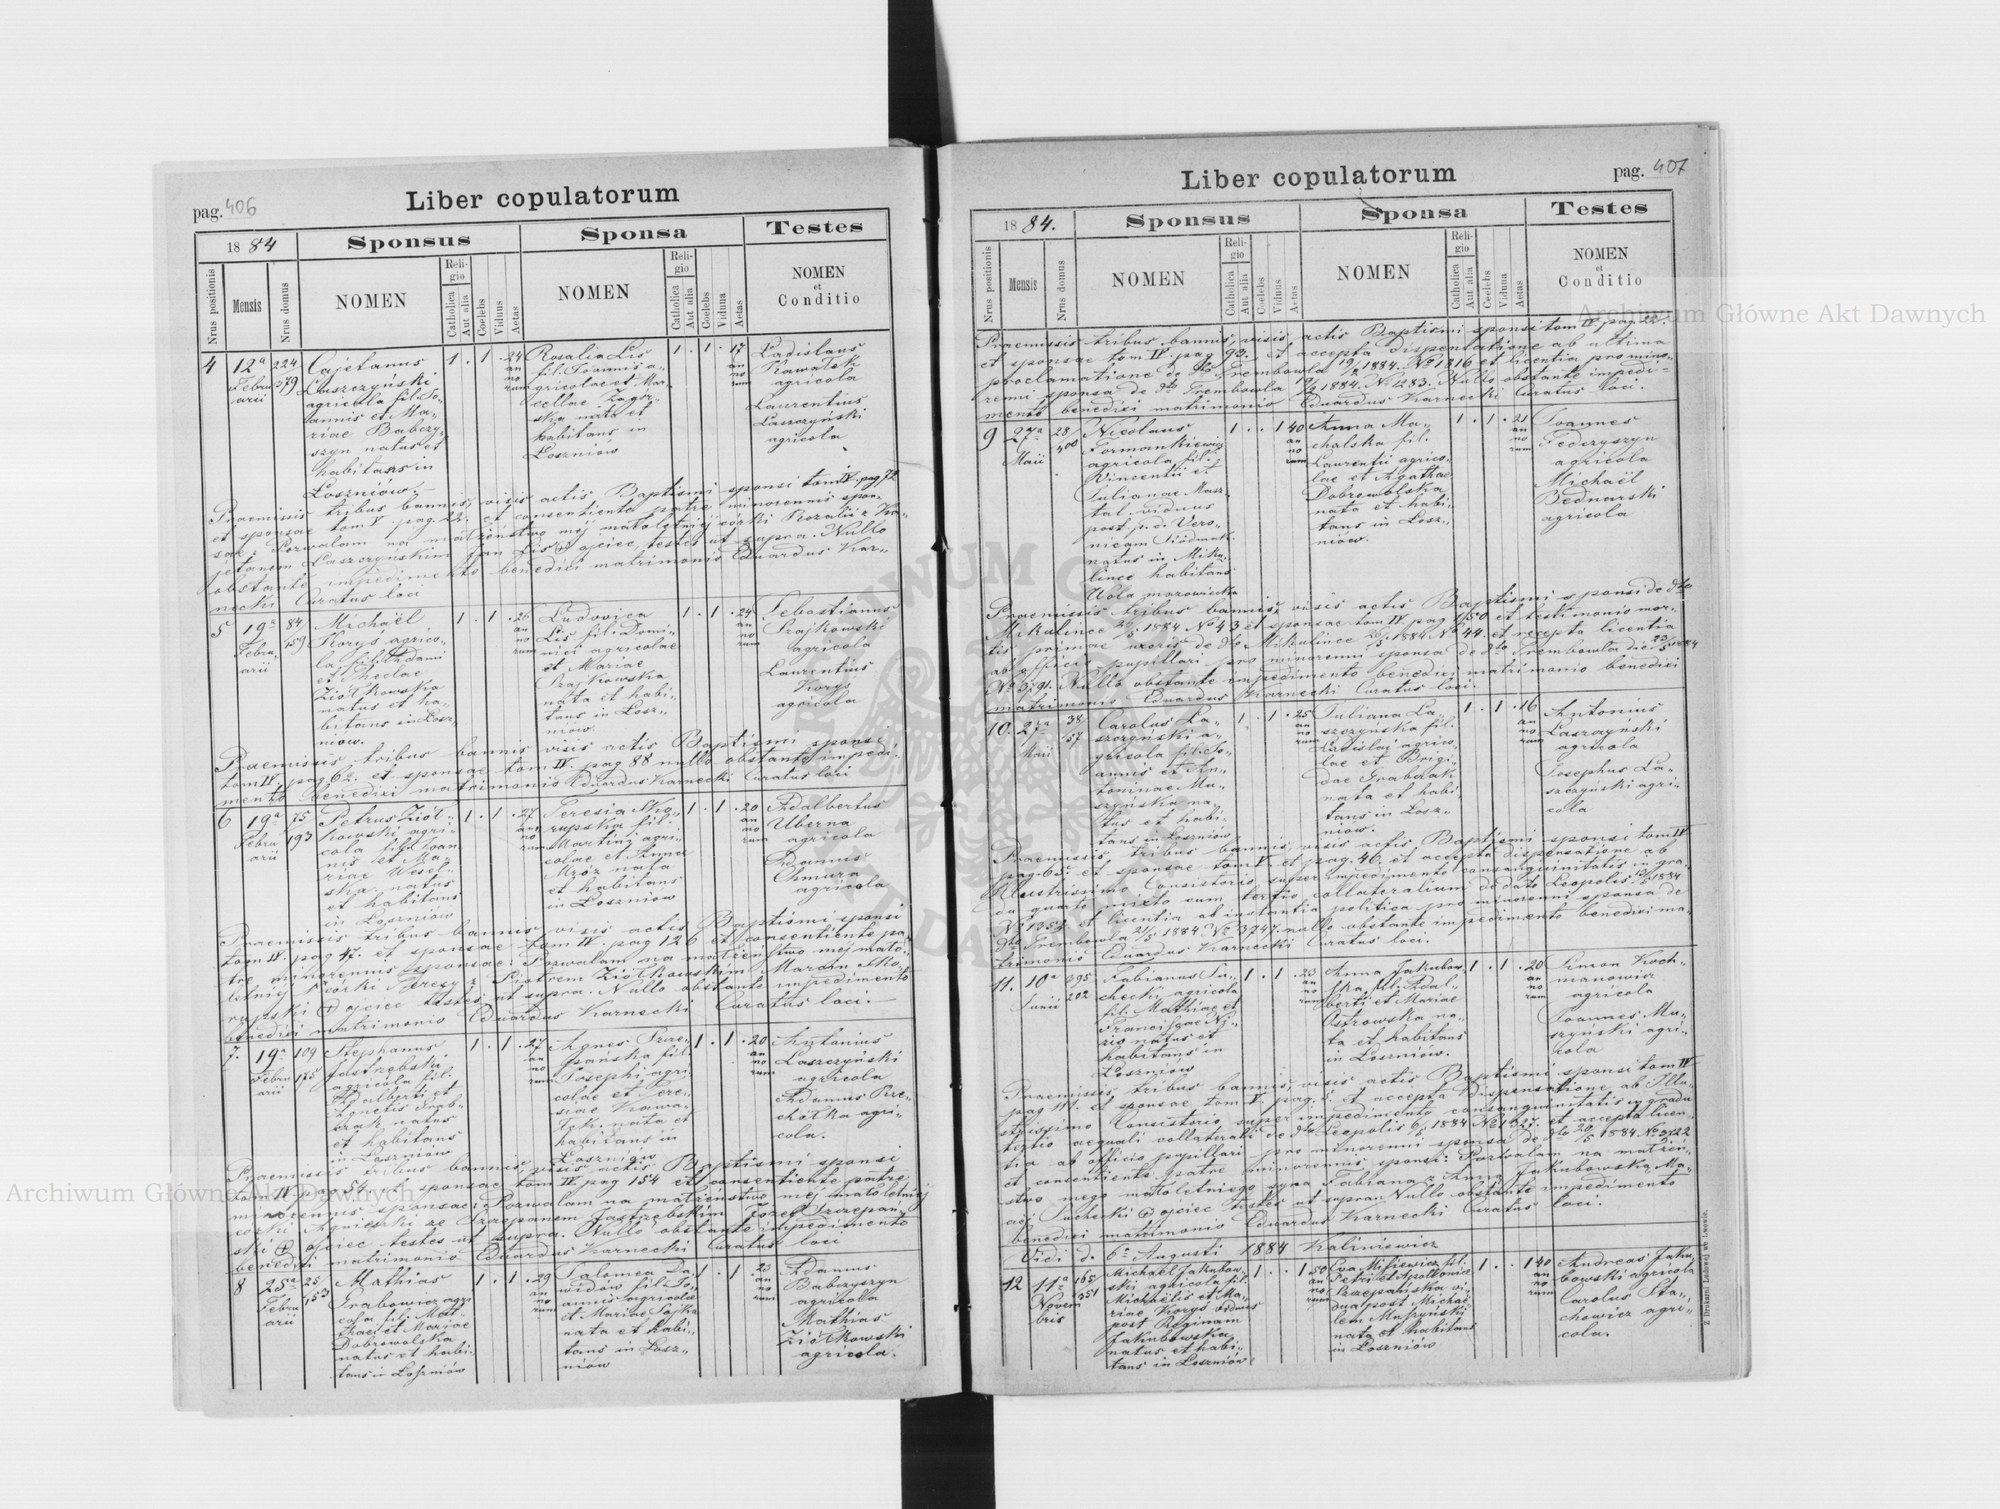 pag. 406
Liber copulatorum
18 84
Sponsus
Sponsa
Testes
Nrus positionis
Mensis
Nrus domus
NOMEN
Religio
Catholica
Aut alia
Coelebs
Viduus
Aetas
NOMEN
Religio
Catholica
Aut alia
Coelebs
Vidua
Aetas
NOMEN
et
Conditio
4
12a
Febru
arii
224
379
Cajetanus
Laszczyński
agricola fil. Jo-
annis et Ma-
riae Babczy-
szyn natus et
habitans in
Łoszniów.
1 . 1 . 24
an
no
rum
Rosalia Lis
fil. Joannis a-
gricolae et Mar-
cellae Zagór-
ska nata et
habitans in
Łoszniów
1 . 1 . 17
an
no
rum
Ladislaus
Kowalsk
agricola
Laurentius
Laszczyński
agricola
Praemissis tribus bannis, visis actis Baptismi sponsi tom IV. pag 72
et sponsae tom V. pag. 22. et consentiente patre minorennis spon-
sae: Pozwalam na małżeństwo mej małoletniej córki Rozalii z Ka-
jetanem Laszczyńskim Jan Lis + ojciec testes ut supra. Nullo
obstante impedimento benedixi matrimonio Eduardus Kar-
necki Curatus loci
5
19a
Febru
arii
84
159
Michaël
Koryś agrico-
la, fil. Adami
et Theclae
Ziółkowska
natus et ha-
bitans in Łosz-
niów.
1 . 1 . 26
an
no
rum
Ludovica
Lis fil. Domi-
nici agricolae
et Mariae
Szajkowska
nata et habi-
tans in Łosz-
niów
1 . 1 . 24
an
no
rum
Sebastianus
Szajkowski
agricola
Laurentius
Koryś
agricola
Praemissis tribus bannis visis actis Baptismi sponsi
tom IV. pag 62. et sponsae tom IV. pag 88 nullo obstante impedi-
mento benedixi matrimonio Eduardus Karnecki Curatus loci
6
19a
Febru
arii
75
193
Petrus Ziół-
kowski agri-
cola fil. Joan-
nis et Ma-
riae Wesel-
ska natus
et habitans
in Łoszniów
1 . 1 . 27
an
no
rum
Teresia Sko-
rupska fil.
Martini agri-
colae et Annae
Mróz nata
et habitans
in Łoszniów
1 . 1 . 20
an
no
rum
Adalbertus
Uberna
agricola
Adamus
Chmura
agricola
Praemissis tribus bannis visis actis Baptismi sponsi
tom IV. pag 47. et sponsae tom IV. pag 126 et consentiente pa-
tre minorennis sponsae: Pozwalam na małżeństwo mej mało-
letniej córki Teresy z Piotrem Ziółkowskim Marcin Sko-
rupski + ojciec testes ut supra. Nullo obstante impedimento
benedixi matrimonio Eduardus Karnecki Curatus loci.
7.
19a
Febru
arii
109
175
Stephanus
Jastrzębski
agricola fil.
Adalberti et
Agnetis Grab-
czak natus
et habitans
in Łoszniów
1 . 1 . 27
an
no
rum
Agnes Szcze-
pańska fil.
Josephi agri
colae et Tere-
siae Kowa-
lyk. nata et
habitans in
Łoszniów
1 . 1 . 20
an
no
rum
Antonius
Laszczyński
agricola
Adamus Prze-
chótka agri-
cola.
Praemissis tribus bannis, visis actis Baptismi sponsi
tom IV. pag 54 et sponsae tom IV pag 154 et consentiente patre
minorennis sponsae: Pozwalam na małżeństwo mej małoletniej
córki Agnieszki ze Szczepanem Jastrzębskim Józef Szczepań-
ski + ojciec testes ut supra. Nullo obstante impedimento
benedixi matrimonio Eduardus Karnecki Curatus loci
8
25a
Febru
arii
25
153
Mathias
Grabowicz agri
cola fil. Mat
thaei et Mariae
Dobrowolska
natus et habi-
tans in Łoszniów
1 . 1 . 29
an
no
rum
Salomea Da
widów fil. Jo-
annis agricolae
et Mariae Sojka
nata et habi-
tans in Łosz-
niów
1 . 1 . 23
an
no
rum
Adamus
Babczyszyn
agricola
Mathias
Ziółkowski
agricola.
pag. 407
Liber copulatorum
18 84.
Sponsus
Sponsa
Testes
Nrus positionis
Mensis
Nrus domus
NOMEN
Religio
Catholica
Aut alia
Coelebs
Viduus
Aetas
NOMEN
Religio
Catholica
Aut alia
Coelebs
Vidua
Aetas
NOMEN
et
Conditio
Praemissis tribus bannis, visis actis Baptismi sponsi tom IV pag 22.
et sponsae tom IV. pag 93. et accepta dispensatione ab ultima
proclamatione de dto Trembowla 19/2 1884. No 1816 et licentia pro mino-
renni sponsa de dto Trembowla 19/2 1884. No 1283. Nullo obstante impedi-
mento benedixi matrimonio Eduardus Karnecki Curatus loci.
9
27a
Maii
28
400
Nicolaus
Formankiewicz
agricola fil.
Vincentii et
Julianae Masz-
tal. viduus
post p. d. Vero-
nicam Siódmak
natus in Miku-
lince habitans
Wola mazowiecka
1 . . 1 40
an
no
rum
Anna Ma-
chalska fil.
Laurentii agrico-
lae et Agathae
Dobrowolska
nata et habi-
tans in Łosz-
niów.
1 . 1 . 21
an
no
rum
Joannes
Fedczyszyn
agricola
Michaël
Bednarski
agricola
Praemissis tribus bannis, visis actis Baptismi sponsi de dto
Mikulińce 26/5 1884 No 43 et sponsae tom IV. pag 150 et testimonio mor-
tis primae uxoris de dto Mikulińce 26/5 1884 No 44. et recepta licentia
ab officio pupillari pro minorenni sponsa de dto Trembowla die 23/5 1884
No 3791. Nullo obstante impedimento benedixi matrimonio benedixi
matrimonio Eduardus Karnecki Curatus loci.
10.
27a
Maii
38
157
Carolus La-
szczyński a-
gricola fil. Jo-
annis et An-
toninae Mu-
szyńska na-
tus et habi-
tans in Łoszniów
1 . 1 . 25
an
no
rum
Juliana La-
szczyńska fil.
Ladislai agrico-
lae et Brigi-
dae Grabczak
nata et habi-
tans in Łosz-
niów.
1 . 1 . 16
an
no
rum
Antonius
Laszczyński
agricola
Josephus La-
szczyński agri-
cola
Praemissis tribus bannis, visis actis Baptismi sponsi tom IV
pag 65. et sponsae tom V. et pag. 46. et accepta dispensatione ab
Illustrissimo Consistorio super impedimento consanguinitatis in gra-
du quarto mixto cum tertio collateralium de dato Leopolis 1884
No 1353 et licentia ab instantia politica pro minorenni sponsa de
dto Trembowla 21/5 1884. No 3747. nullo obstante impedimento benedixi ma-
trimonio Eduardus Karnecki Curatus loci.
11.
10a
Junii
395
202
Fabianus Su-
checki agricola
fil. Matthiae et
Franciscae Ni-
zio natus et
habitans in
Łoszniów
1 . 1 . 23
an
no
rum
Anna Jakubow
ska, fil. Adal-
berti et Mariae
Ostrowska na-
ta et habitans
in Łoszniów.
1 . 1 . 20
an
no
rum
Simon Koch-
manowicz
agricola
Joannes Mu-
szyński agri-
cola
Praemissis tribus bannis, visis actis Baptismi sponsi tom IV
pag 111. et sponsae tom V. pag. 5. et accepta dispensatione ab Illu-
strissimo Consistorio super impedimento consanguinitatis in gradu
tertio aequali collaterali de dto Leopolis 6/6 1884 No 1827. et accepta licen-
tia ab officio pupillari pro minorenni sponsa de dto 20/5 1884. No 3722
et consentiente patre minorennis sponsi: Pozwalam na małżeń-
stwo mego małoletniego syna Fabiana z Anną Jakubowską Ma-
ciej Suchecki + ojciec testes ut supra. Nullo obstante impedimento
benedixi matrimonio Eduardus Karnecki Curatus loci.
Vidi d. 6a Augusti 1884 Kaliniewicz
12
11a
Novem
bris
165
351
Michaël Jakubow-
ski agricola fil.
Michaëlis et Ma-
riae Korys viduus
post Reginam
Jakubowska
natus et habi-
tans in Łoszniów
1 . . 1 50
an
no
rum
Eva Misiewicz fil.
Petri et Apolloniae
Szczepańska vi-
dua post Michaë
lem Muszyński
nata et habitans
in Łoszniów
1 . . 1 40
an
no
rum
Andreas Jaku
bowski agricola
Carolus Sta-
chowicz agri-
cola.
Z Drukarni Ludowej we Lwowie.
Archiwum Główne Akt Dawnych
Archiwum Główne Akt Dawnych
ARCHIWUM GŁÓWNE AKT DAWNYCH